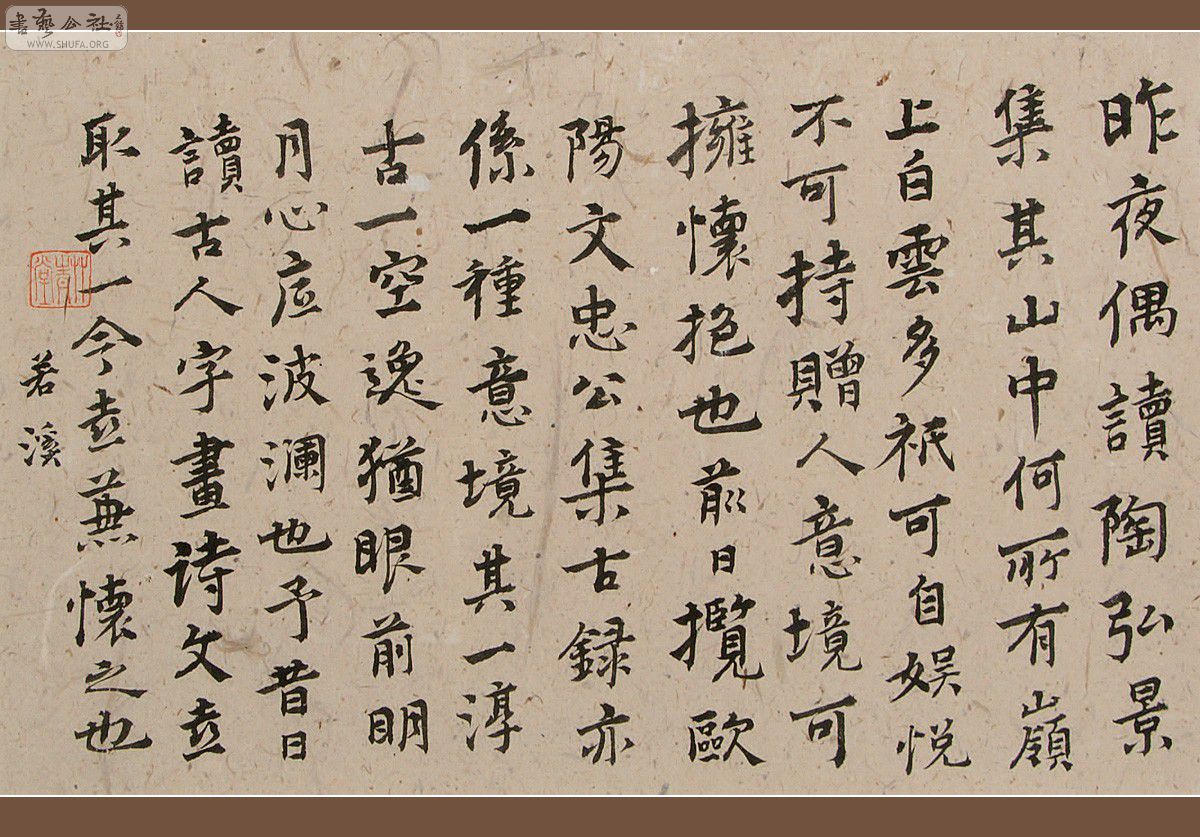 昨夜偶讀陶弘景
集其山中何所有嶺
上白雲多祇可自娛悦
不可持贈人意境可
擁懷抱也前日攬歐
陽文忠公集古録亦
係一種意境其一淳
古一空逸猶眼前明
月心底波瀾也予昔日
讀古人字畫詩文盍
取其一今盍兼懷之也
若溪
書藝公社
WWW.SHUFA.ORG